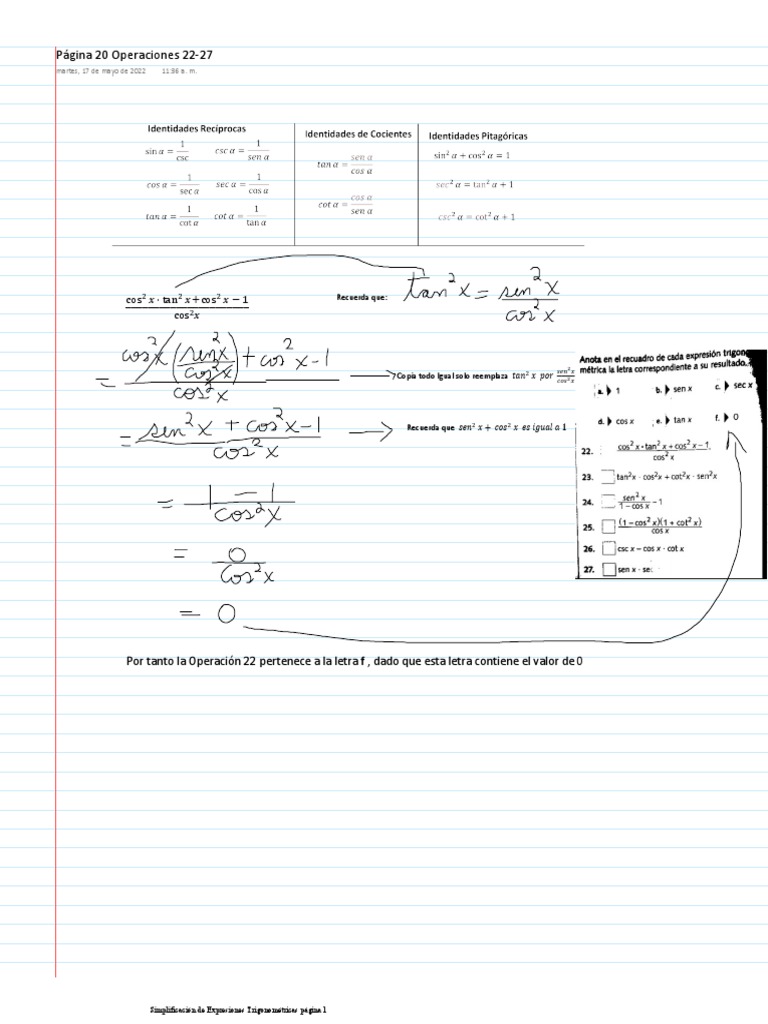 Página 20 Operaciones 22-27
martes, 17 de mayo de 2022 11:36 a. m.
Identidades Recíprocas Identidades de Cocientes Identidades Pitagóricas
sin α = 1/csc csc α = 1/sen α tan α = sen α/cos α sin² α + cos² α = 1
cos α = 1/sec α sec α = 1/cos α cot α = cos α/sen α sec² α = tan² α + 1
tan α = 1/cot α cot α = 1/tan α csc² α = cot² α + 1
(cos² x · tan² x + cos² x − 1)/cos² x Recuerda que: tan² x = sen² x/cos² x
= (cos² x (sen² x/cos² x) + cos² x − 1)/cos² x Copia todo Igual solo reemplaza tan² x por sen² x/cos² x
= (sen² x + cos² x − 1)/cos² x Recuerda que sen² x + cos² x es igual a 1
= (1 − 1)/cos² x
= 0/cos² x
= 0
Anota en el recuadro de cada expresión trigon
métrica la letra correspondiente a su resultado.
a. 1 b. sen x c. sec x
d. cos x e. tan x f. 0
22. (cos² x • tan² x + cos² x − 1)/cos² x
23. tan² x · cos² x + cot² x · sen² x
24. sen² x/(1 − cos x) − 1
25. (1 − cos² x)(1 + cot² x)/cos x
26. csc x − cos x · cot x
27. sen x · se
Por tanto la Operación 22 pertenece a la letra f , dado que esta letra contiene el valor de 0
Simplificación de Expresiones Trigonometricas página 1